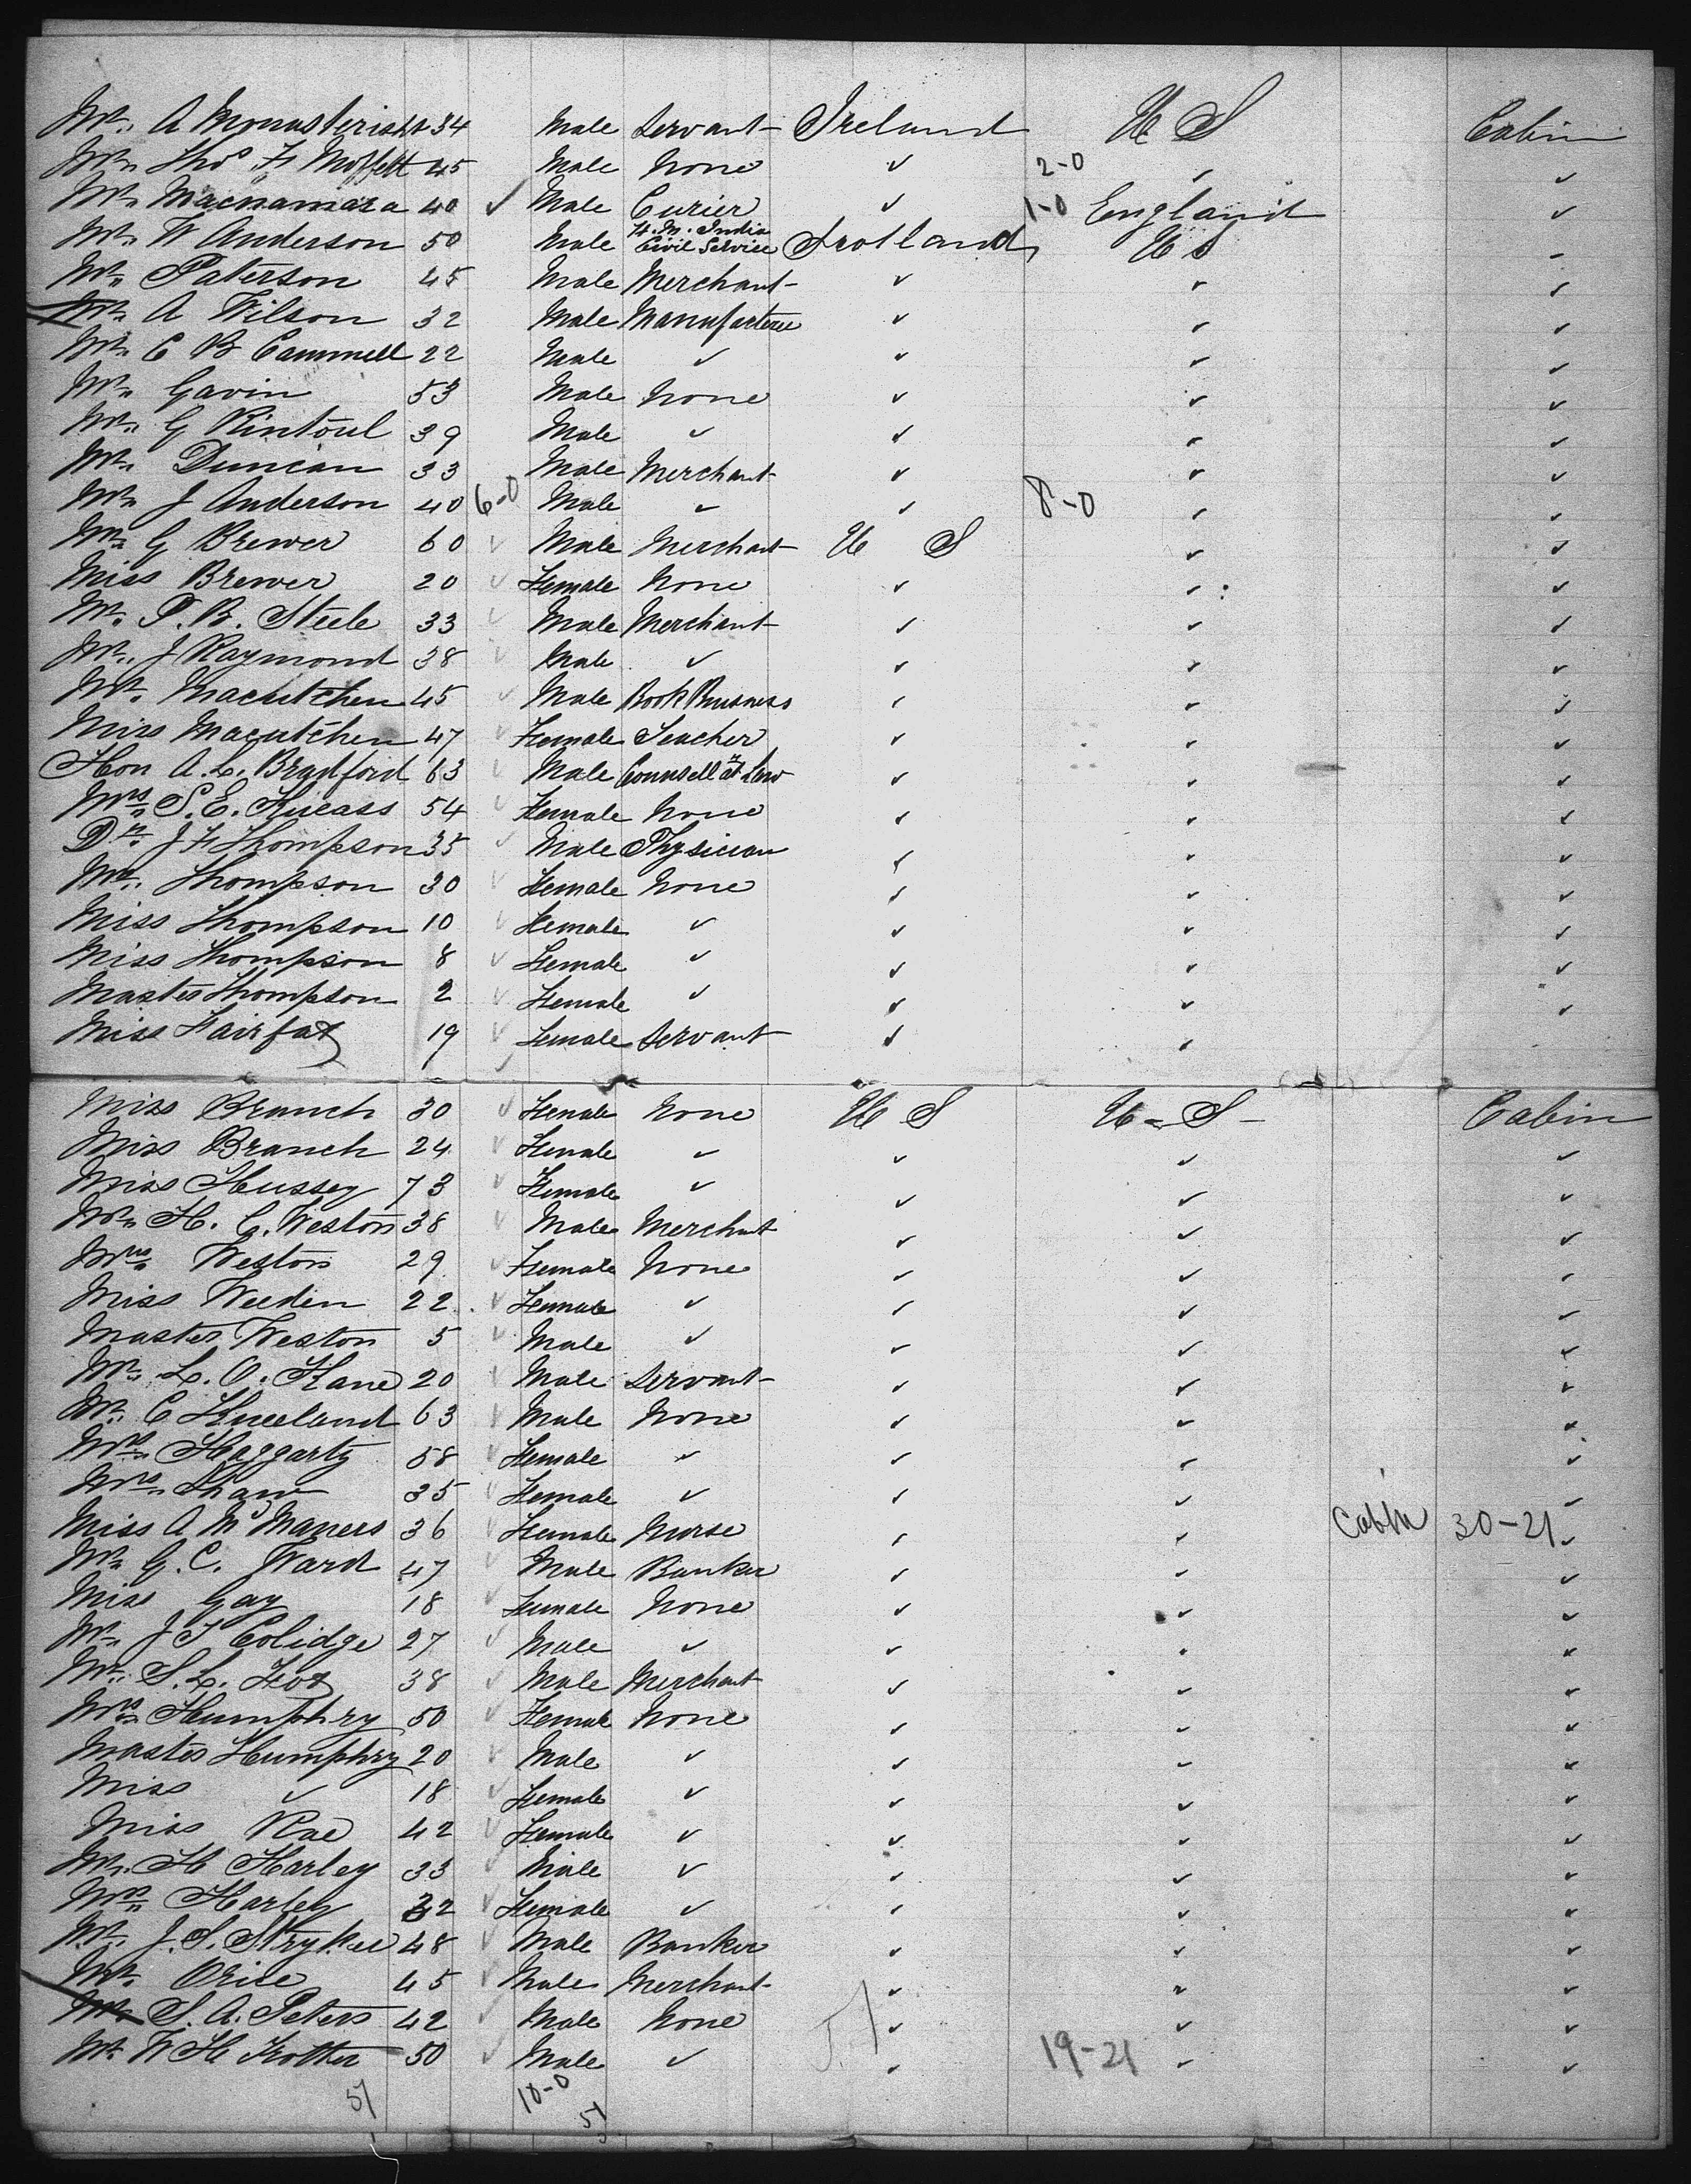 Mr. A Monasterisht 34 Male Servant Ireland U S Cabin
Mr. Thos F Moffett 45 Male None ✓ 2-0 ✓ ✓
Mr. Macnamara 40 ✓ Male Curier ✓ 1-0 England ✓
Mr. W Anderson 50 Male H.M. India Civil Service Scotland U S -
Mr. Paterson 45 Male Merchant ✓ ✓ ✓
Mr. A Wilson 32 Male Manufacterer ✓ ✓ ✓
Mr. C B Cammell 22 Male ✓ ✓ ✓ ✓
Mr. Gavin 53 Male None ✓ ✓ ✓
Mr. G Rintoul 39 Male ✓ ✓ ✓ ✓
Mr. Duncan 33 Male Merchant ✓ ✓ ✓
Mr. J Anderson 40 6-0 Male ✓ ✓ 8-0 ✓ ✓
Mr. G Brewer 60 ✓ Male Merchant U S ✓ ✓
Miss Brewer 20 ✓ Female None ✓ ✓ ✓
Mr. P. B. Steele 33 ✓ Male Merchant ✓ ✓ ✓
Mr. J Raymond 38 ✓ Male ✓ ✓ ✓ ✓
Mr. Macutchen 45 ✓ Male Book Business ✓ ✓ ✓
Miss Macutchen 47 Female Teacher ✓ ✓ ✓
Hon A. L. Bradford 63 ✓ Male Counsell at Law ✓ ✓ ✓
Mrs S. E. 54 ✓ Female None ✓ ✓ ✓
Dr. J F Thompson 35 ✓ Male Physician ✓ ✓ ✓
Mrs. Thompson 30 ✓ Female None ✓ ✓ ✓
Miss Thompson 10 ✓ Female ✓ ✓ ✓ ✓
Miss Thompson 8 ✓ Female ✓ ✓ ✓ ✓
Master Thompson 2 ✓ Female ✓ ✓ ✓ ✓
Miss Fairfax 19 ✓ Female Servant ✓ ✓
Miss Branch 30 ✓ Female None U S U - S - Cabin
Miss Branch 24 ✓ Female ✓ ✓ ✓ ✓
Miss Hussey 73 ✓ Female ✓ ✓ ✓ ✓
Mr. H. C. Weston 38 ✓ Male Merchant ✓ ✓ ✓
Mrs. Weston 29 ✓ Female None ✓ ✓ ✓
Miss Weeden 22 ✓ Female ✓ ✓ ✓ ✓
Master Weston 5 ✓ Male ✓ ✓ ✓ ✓
Mr. L. O. Kane 20 ✓ Male Servant ✓ ✓ ✓
Mr. C Kneeland 63 ✓ Male None ✓ ✓ ✓
Mrs. Haggarty 58 ✓ Female ✓ ✓ ✓ ✓
Mrs. Shaw 35 ✓ Female ✓ ✓ ✓ ✓
Miss A Mc Maners 36 ✓ Female Nurse ✓ ✓ Cabin 30-21 ✓
Mr. G. C. Ward 47 ✓ Male Banker ✓ ✓ ✓
Miss Gay 18 ✓ Female None ✓ ✓ ✓
Mr. J T Colidge 27 ✓ Male ✓ ✓ ✓ ✓
Mr. S. L. Fox 38 ✓ Male Merchant ✓ ✓ ✓
Mrs. Humphry 50 ✓ Female None ✓ ✓ ✓
Master Humphry 20 ✓ Male ✓ ✓ ✓ ✓
Miss ✓ 18 ✓ Female ✓ ✓ ✓ ✓
Miss Rae 42 ✓ Female ✓ ✓ ✓ ✓
Mr. H Harley 33 ✓ Male ✓ ✓ ✓ ✓
Mrs. Harley 32 ✓ Female ✓ ✓ ✓ ✓
Mr. J. S. Stryker 48 ✓ Male Banker ✓ ✓ ✓
Mr. Orice 45 ✓ Male Merchant ✓ ✓ ✓
Mr. S. A. Peters 42 ✓ Male None ✓ ✓ ✓
Mr. W H Trotter 50 ✓ Male ✓ 51 ✓ 19-21 ✓ ✓
51 18-0 51